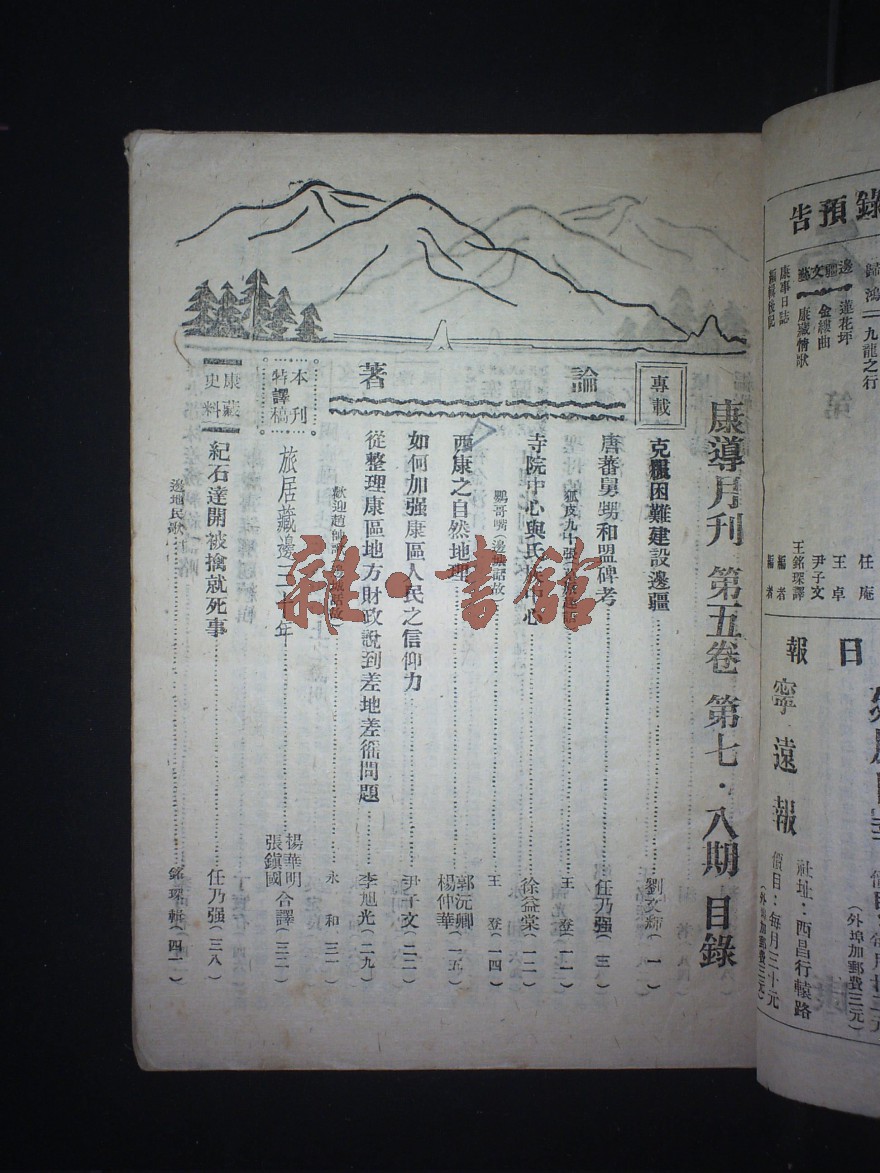 康導月刊 第五卷 第七・八期 目錄
專載
克服困難建設邊疆 劉文輝（一）
論著
唐蕃舅甥和盟碑考 任乃强（三）
王 登（一一）
寺院中心與氏族中心 徐益棠（一二）
鸚哥嘴（邊疆話故） 王 登（一四）
西康之自然地理 郭沅卿 楊仲華（一五）
如何加强康區人民之信仰力 尹子文（二二）
從整理康區地方財政說到差地差徭問題 李旭光（二九）
永 和（三一）
本刊特譯稿
旅居藏邊三十年 楊華明 張鎮國 合譯（三二）
康藏史料
紀石達開被擒就死事 任乃强（三八）
邊地民歌 銘琛輯（四一）
雜・書館
錄預告
歸鴻 任庵
九龍之行
邊疆文藝
蓮花坪 王卓
金縷曲 尹子文
康藏情歌 王銘琛譯
康事日誌 編者
編輯後記 編者
日報
寧遠報
社址：西昌行轅路
價目：每月三十元
（外埠加郵費三元）
（外埠加郵費三元）